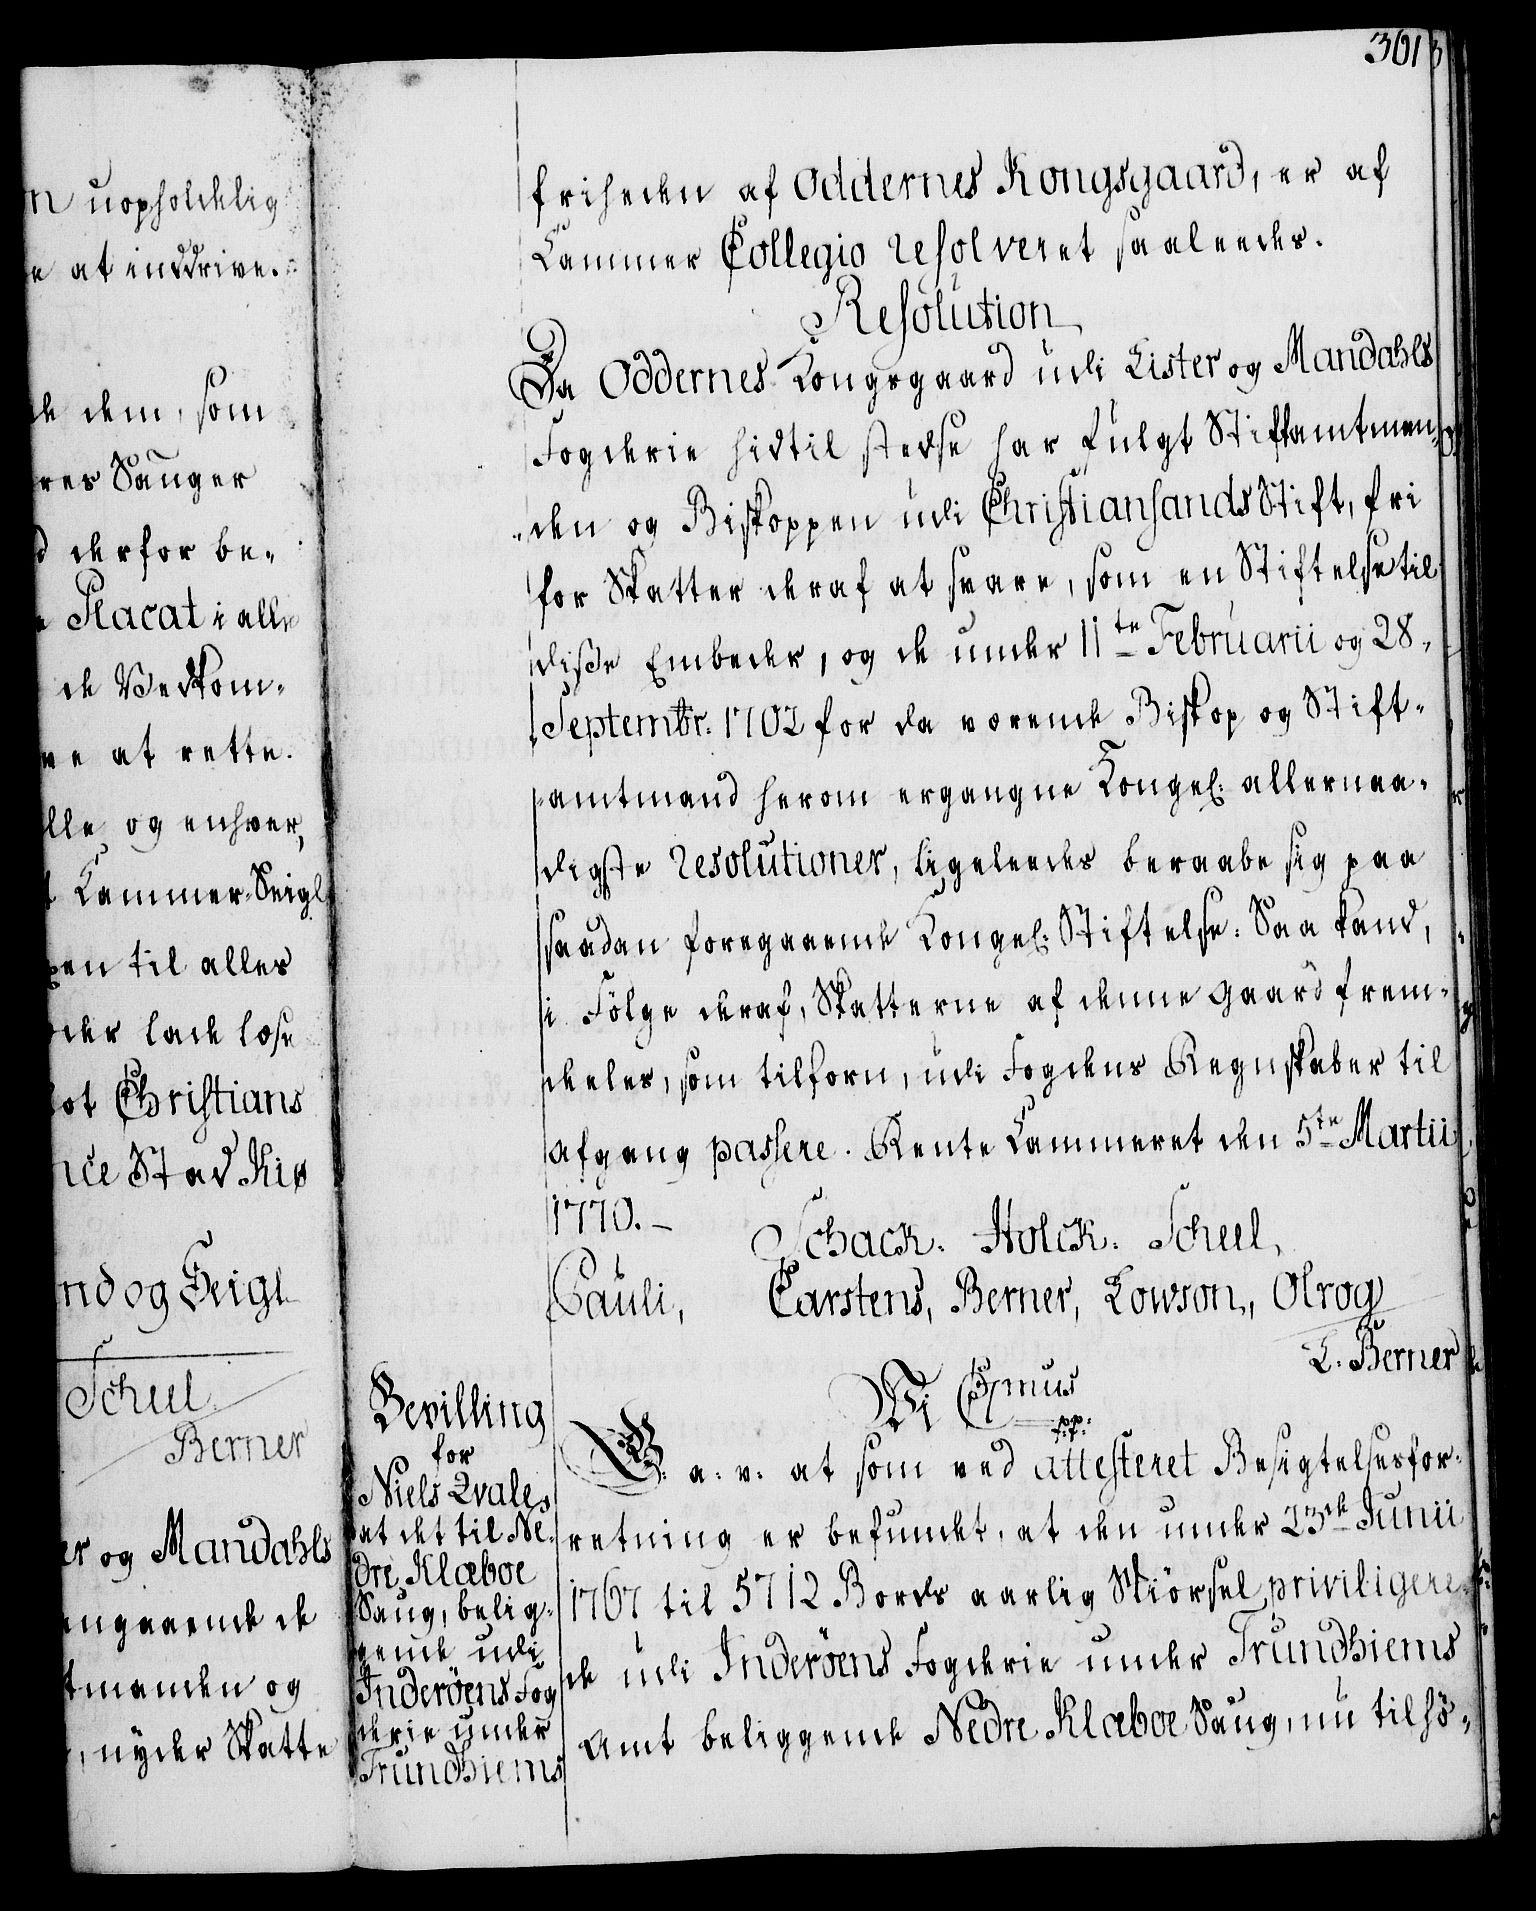 361
n uopholdelig
e at inddrive.
de dem, som
res Sauger
d derfor be-
e Placat i alle
de Vedkom-
ve at rette.
lle og enhver,
t Kammer-Seigl
pen til alles
der lade læse
lot Christians
nce Stad Kiø
nd og Seigl
Scheel
Berner
er og Mandahls
angaaende de
tmanden og
, nyder Skatte
friheden af Oddernes Kongsgaard, er af
Cammer Collegio resolveret saaleedes.
Resolution
Da Oddernes Kongsgaard udi Lister og Mandahls
Fogderie hidtil stedse har fulgt Stiftamtman-
den og Biskoppen udi Christiansands Stift, fri
for Skatter deraf at svare, som en Stiftelse til
disse Embeder, og de under 11te Februarii og 28.
Septembr. 1702 for da værende Biskop og Stift-
amtmand herom ergangne Kongel. allernaa-
digste resolutioner, ligeleedes beraabe sig paa
saadan foregaaende Kongel. Stiftelse: Saa kand,
i Fölge deraf, Skatterne af denne gaard frem-
deeles, som tilforn, udi Fogdens Regnskaber til
afgang passere. Rente Cammeret den 5te Martii
1770.-
Schack. Holck. Scheel,
Pauli, Carstens, Berner, Lowson, Olrog
L. Berner
Bevilling
for
Niels Qvale,
at det til Ne-
dre Klæboe
Saug, belig-
gende udi
Inderöens Fog
derie under
Trundhiems
Wi C7mus
pp:
G. a. v. at som ved attesteret Besigtelsesfor-
retning er befundet, at den under 23de Junii
1767 til 5712 Bords aarlig Skiörsel priviligere-
de udi Inderöens Fogderie under Trundhiems
Amt beliggende Nedre Klæboe Saug, nu tilhö-